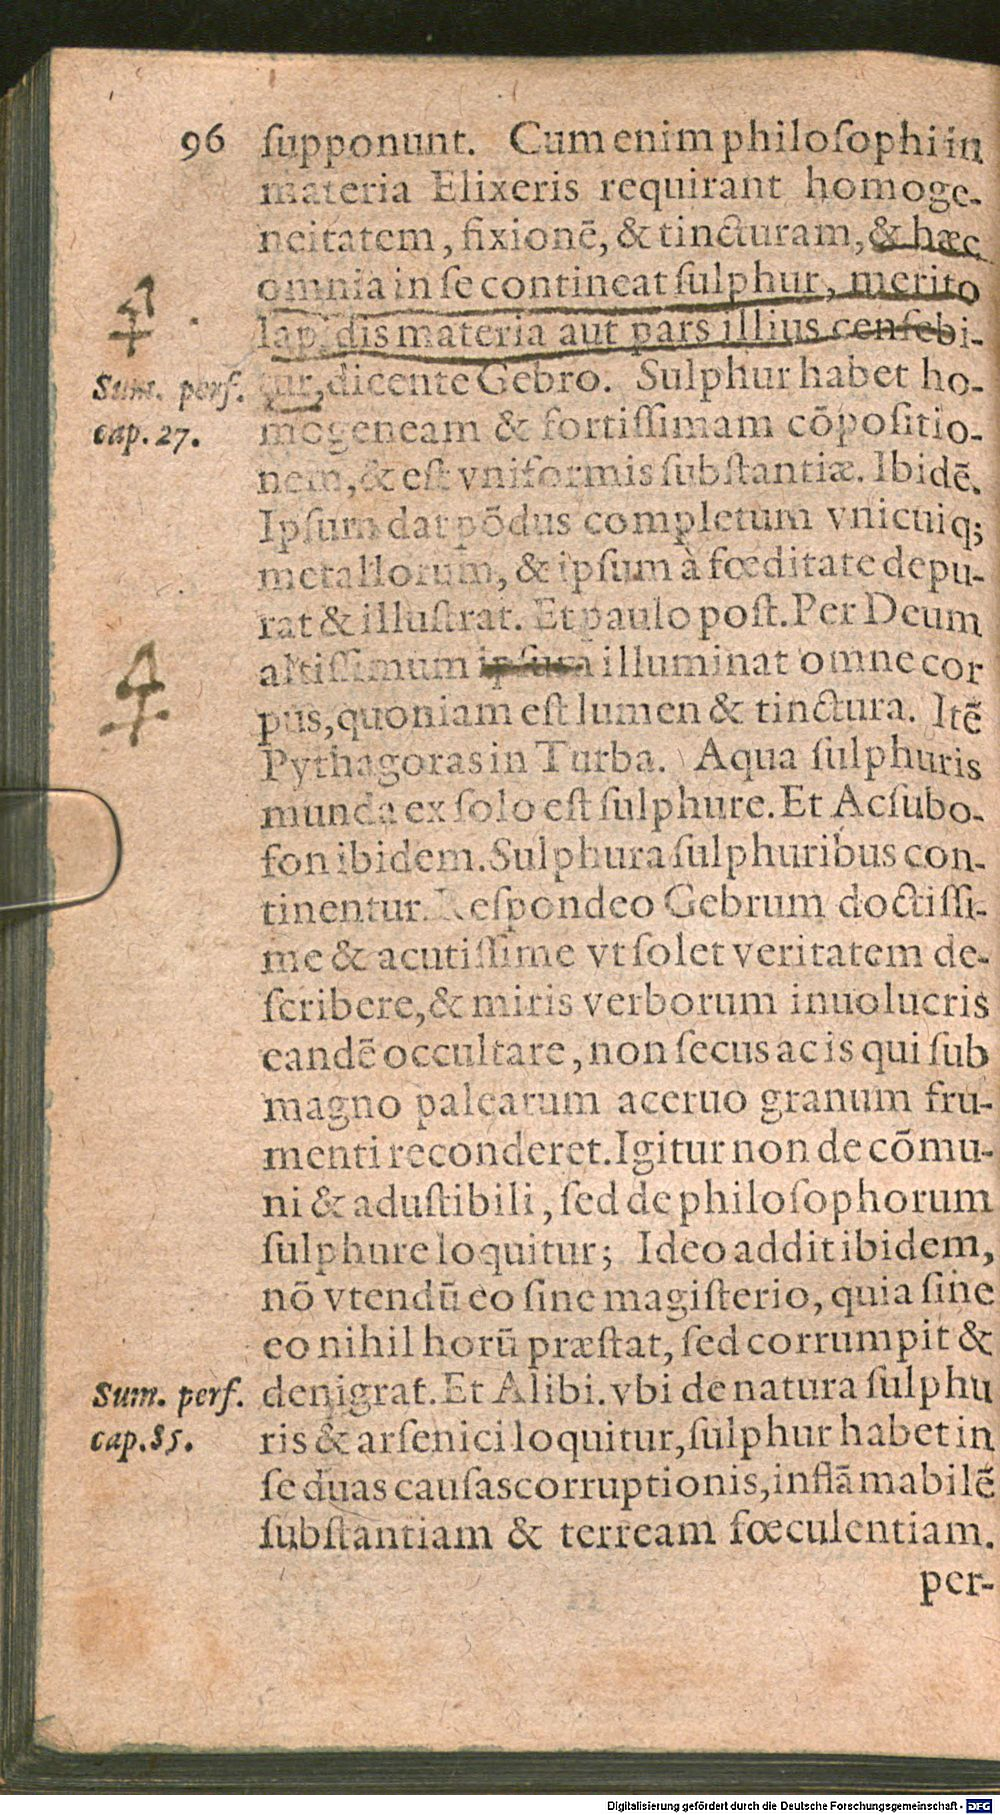 96 ſupponunt. Cum enim philoſophi in
materia Elixeris requirant homoge-
neitatem, fixionē, & tincturam, & hæc
omnia in ſe contineat ſulphur, merito
lapidis materia aut pars illius cenſebi-
Sum. perf. tur, dicente Gebro. Sulphur habet ho-
cap. 27. mogeneam & fortiſſimam cōpoſitio-
nem, & eſt vniformis ſubſtantiæ. Ibidē.
Ipſum dat pōdus completum vnicuiq;
metallorum, & ipſum à fœditate depu-
rat & illuſtrat. Et paulo poſt. Per Deum
altiſſimum illuminat omne cor
pus, quoniam eſt lumen & tinctura. Itē
Pythagoras in Turba. Aqua ſulphuris
munda ex ſolo eſt ſulphure. Et Acſubo-
fon ibidem. Sulphura ſulphuribus con-
tinentur. Reſpondeo Gebrum doctiſſi-
me & acutiſſime vt ſolet veritatem de-
ſcribere, & miris verborum inuolucris
eandē occultare, non ſecus ac is qui ſub
magno palearum aceruo granum fru-
menti reconderet. Igitur non de cōmu-
ni & aduſtibili, ſed de philoſophorum
ſulphure loquitur; Ideo addit ibidem,
nō vtendū eo ſine magiſterio, quia ſine
eo nihil horū præſtat, ſed corrumpit &
Sum. perf. denigrat. Et Alibi. vbi de natura ſulphu
cap. 85. ris & arſenici loquitur, ſulphur habet in
ſe duas cauſas corruptionis, inflāmabilē
ſubſtantiam & terream fœculentiam.
per-
Digitalisierung gefördert durch die Deutsche Forschungsgemeinschaft - DFG